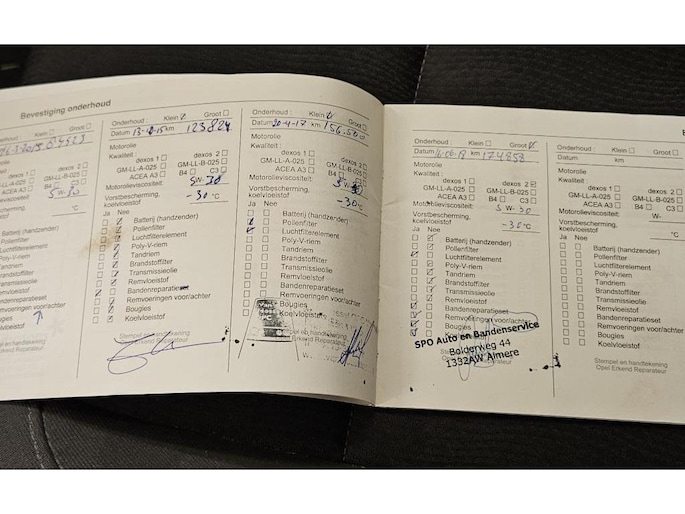 Bevestiging onderhoud
Onderhoud: Klein Groot
Datum 13-10-15 km 123824
Motorolie
Kwaliteit:
dexos 1 dexos 2
GM-LL-A-025 GM-LL-B-025
ACEA A3 B4 C3
Motorolieviscositeit: 5W-30
Vorstbescherming,
koelvloeistof -30°C
Ja Nee
Batterij (handzender)
Pollenfilter
Luchtfilterelement
Poly-V-riem
Tandriem
Brandstoffilter
Transmissieolie
Remvloeistof
Bandenreparatieset
Remvoeringen voor/achter
Bougies
Koelvloeistof
Stempel en handtekening
Erkend Reparateur
Onderhoud: Klein Groot
Datum 20-4-17 km 156.500
Motorolie
Kwaliteit:
dexos 1 dexos 2
GM-LL-A-025 GM-LL-B-025
ACEA A3 B4 C3
Motorolieviscositeit: 5W-30
Vorstbescherming,
koelvloeistof -30°C
Ja Nee
Batterij (handzender)
Pollenfilter
Luchtfilterelement
Poly-V-riem
Tandriem
Brandstoffilter
Transmissieolie
Remvloeistof
Bandenreparatieset
Remvoeringen voor/achter
Bougies
Koelvloeistof
en handtekening
Erkend Reparateur
Onderhoud: Klein Groot
Datum km 174853
Motorolie
Kwaliteit:
dexos 1 dexos 2
GM-LL-A-025 GM-LL-B-025
ACEA A3 B4 C3
Motorolieviscositeit: 5W-30
Vorstbescherming,
koelvloeistof -30°C
Ja Nee
Batterij (handzender)
Pollenfilter
Luchtfilterelement
Poly-V-riem
Tandriem
Brandstoffilter
Transmissieolie
Remvloeistof
Bandenreparatieset
Remvoeringen voor/achter
Bougies
SPO Auto en Bandenservice
Bolderweg 44
1332AW Almere
Stempel en handtekening
Opel Erkend Reparateur
Onderhoud: Klein Groot
Datum km
Motorolie
Kwaliteit:
dexos 1 dexos 2
GM-LL-A-025 GM-LL-B-025
ACEA A3 B4 C3
Motorolieviscositeit: W-
Vorstbescherming,
koelvloeistof °C
Ja Nee
Batterij (handzender)
Pollenfilter
Luchtfilterelement
Poly-V-riem
Tandriem
Brandstoffilter
Transmissieolie
Remvloeistof
Bandenreparatieset
Remvoeringen voor/achter
Bougies
Koelvloeistof
Stempel en handtekening
Opel Erkend Reparateur